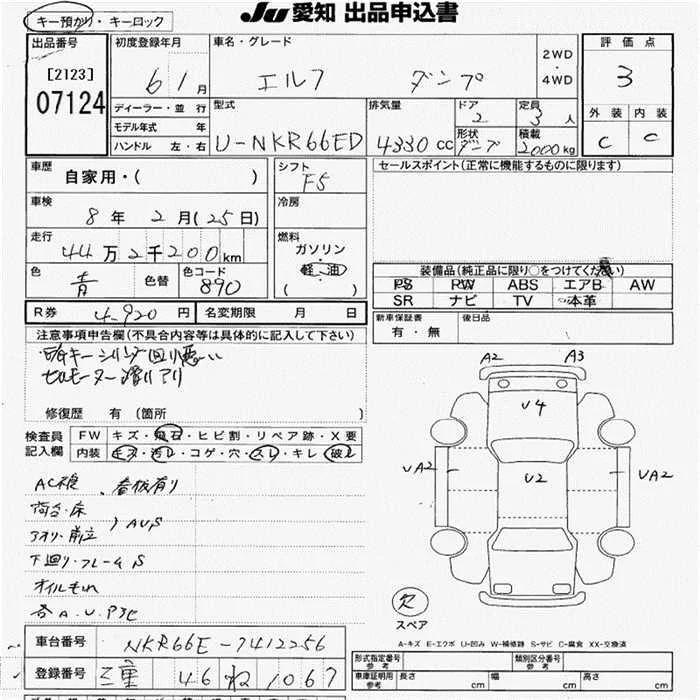 キー預かり・キーロック
JU 愛知 出品申込書
出品番号
[2123]
07124
初度登録年月
61月
車名・グレード
エルフ ダンプ
2WD
・
4WD
評価点
3
外装 内装
C C
ディーラー・並行
モデル年式 年
ハンドル 左・右
型式
U-NKR66ED
排気量
4330cc
ドア
2
形状
ダンプ
定員
3人
積載
2000kg
車歴
自家用・( )
車検
8年2月(25日)
走行
44万2千200km
色
青
色替
色コード
890
シフト
F5
冷房
燃料
ガソリン・
軽・油
( )
セールスポイント(正常に機能するものに限ります)
装備品(純正品に限り○をつけてください)
PS PW ABS エアB AW
SR ナビ TV 本革
R券 4,920円
名変期限 月 日
新車保証書
有・無
後日品
注意事項申告欄(不具合内容等は具体的に記入して下さい)
キーシリンダ回り悪い
セルモーター滑りアリ
修復歴 有(箇所 )
検査員
記入欄
FW キズ・飛石・ヒビ割・リペア跡・X要
内装 キズ・汚レ・コゲ・穴・スレ・キレ・破レ
看板有り
荷台・床
アオリ・前立
)AUS
下廻り・フレームS
オイルもれ
各A.U.P
A2 A3
U4
UA2 U2 UA2
欠
スペア
A-キズ E-エクボ U-凹み W-補修跡 S-サビ C-腐食 XX-交換済
車台番号 NKR66E-7412256
登録番号 三重 46 ね 1067
形式指定番号
参考
類別区分番号
参考
車庫証明用
参考
長さ cm 幅 cm 高さ cm